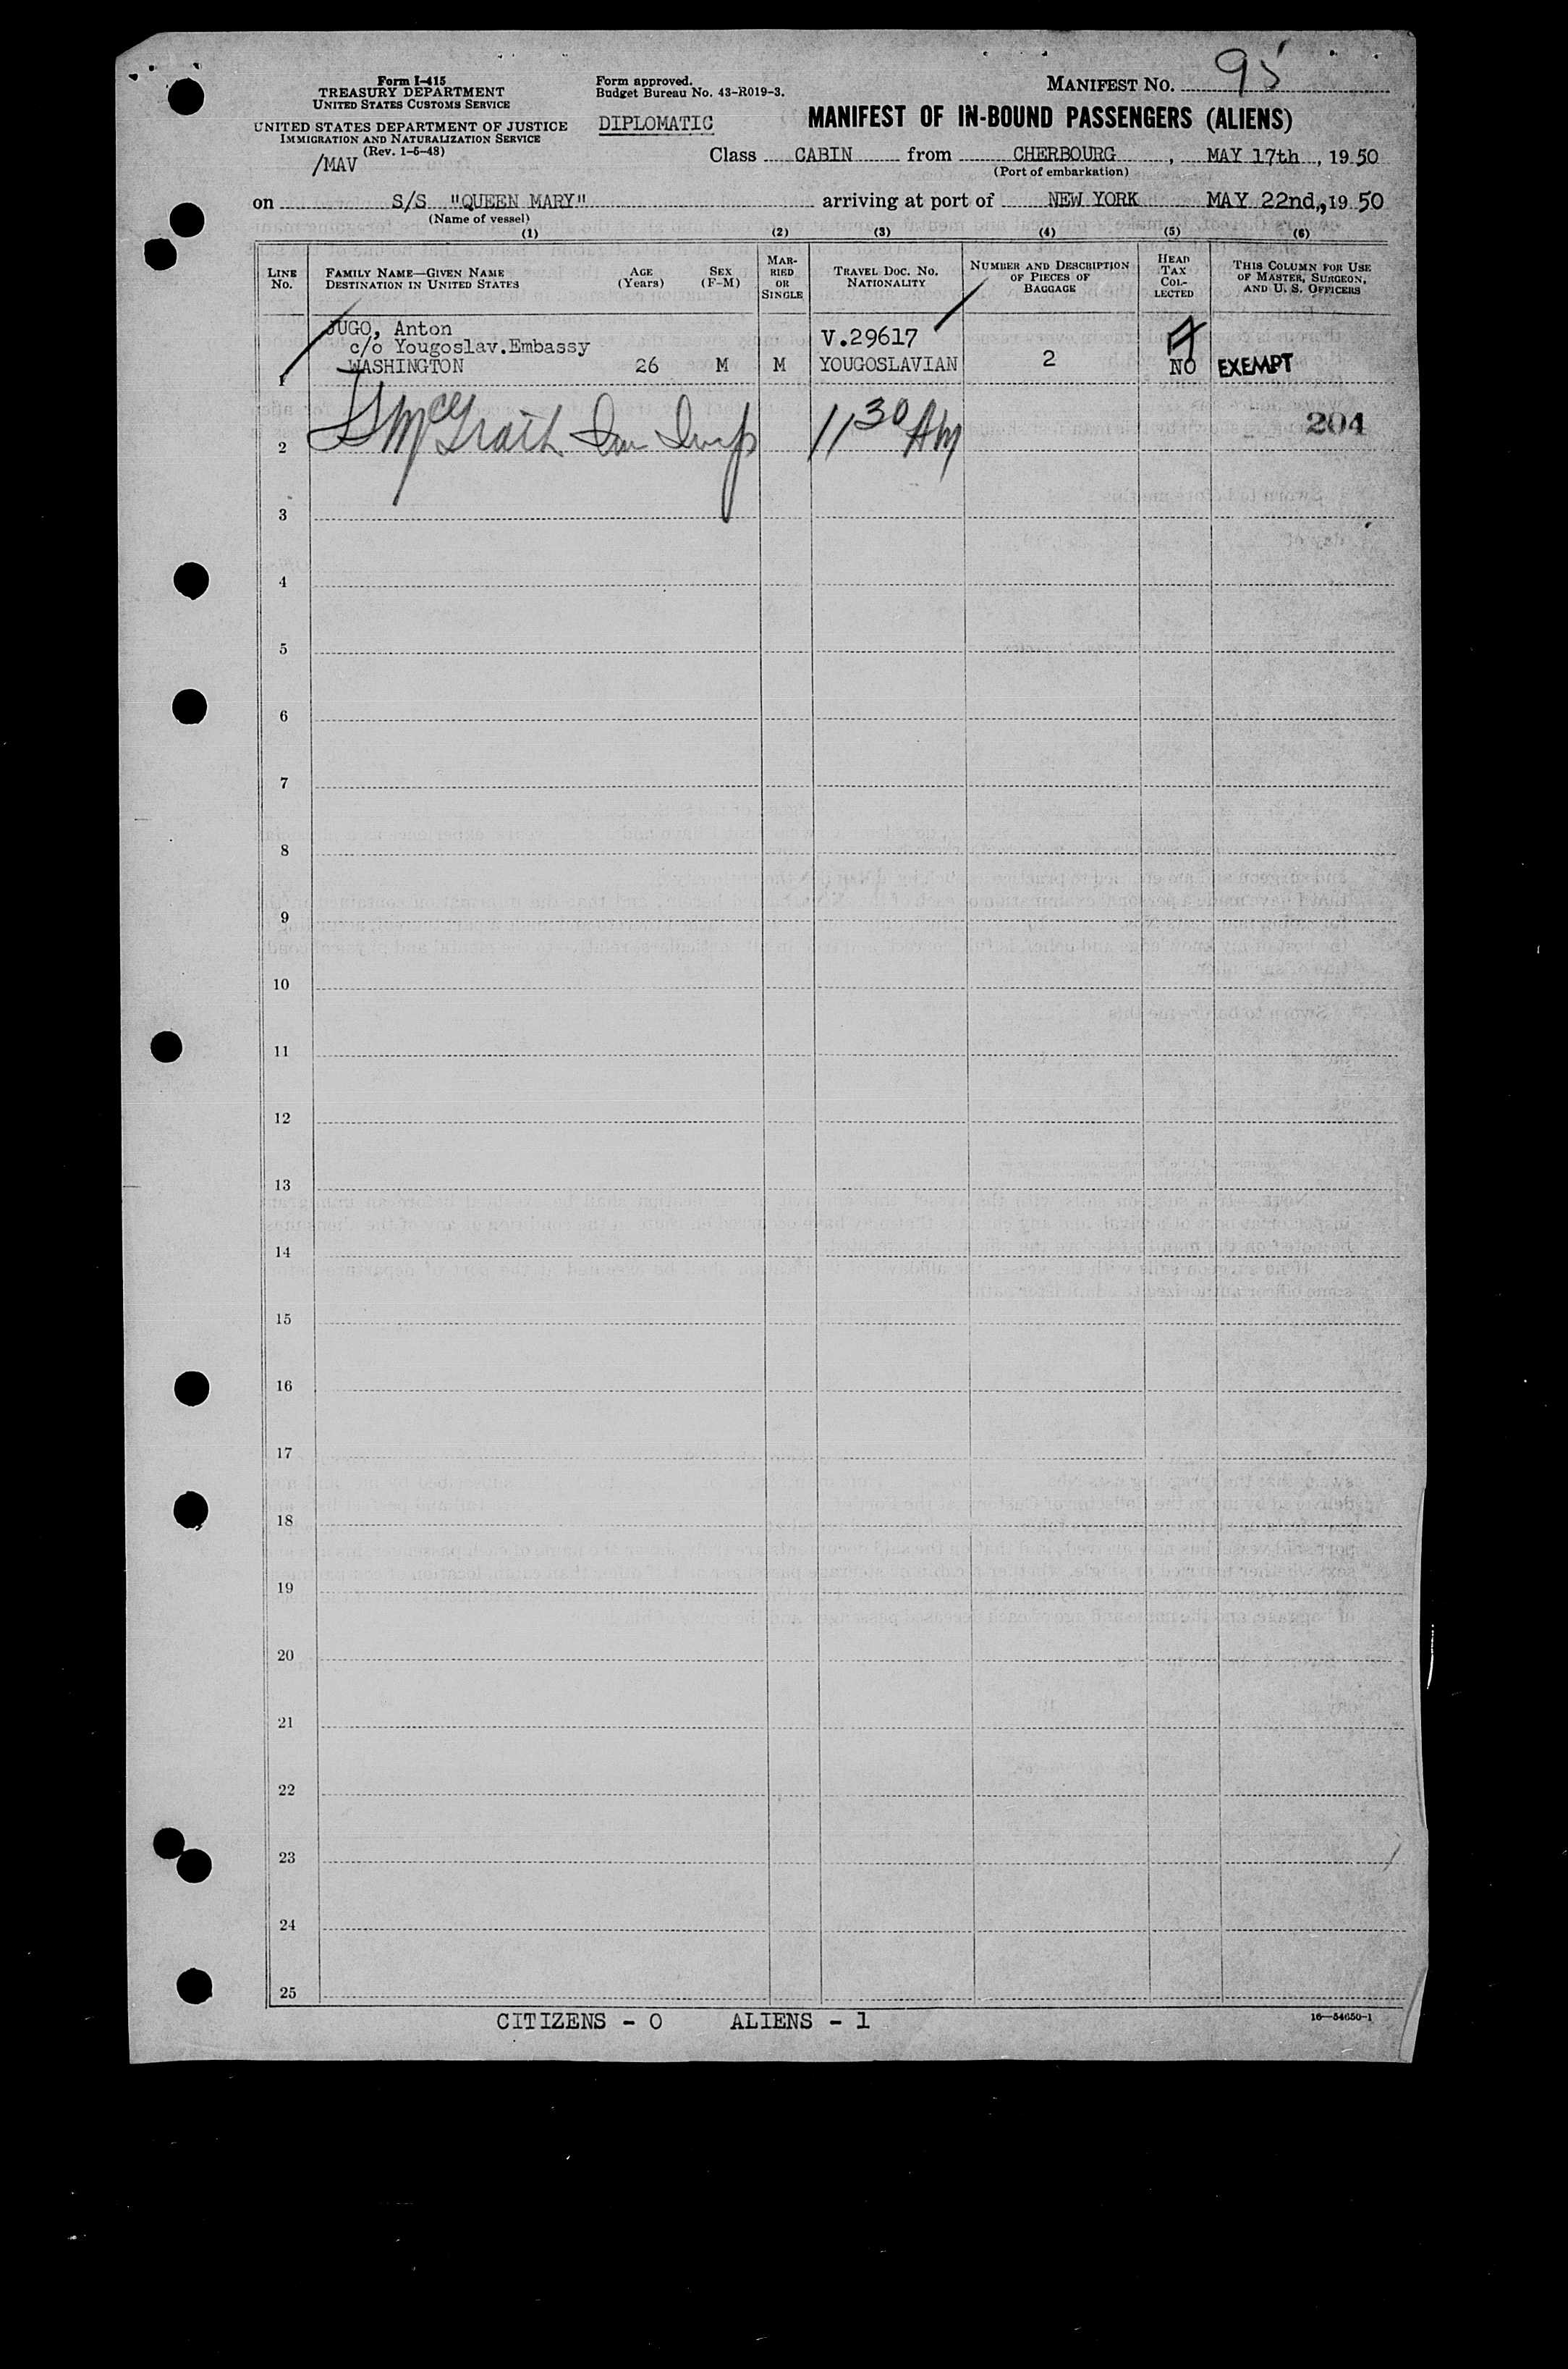 Form I-415
TREASURY DEPARTMENT
UNITED STATES CUSTOMS SERVICE
UNITED STATES DEPARTMENT OF JUSTICE
IMMIGRATION AND NATURALIZATION SERVICE
(Rev. 1-5-48)
/MAV
Form approved.
Budget Bureau No. 43-R019-3.
DIPLOMATIC
MANIFEST NO. 95
MANIFEST OF IN-BOUND PASSENGERS (ALIENS)
Class CABIN from CHERBOURG, MAY 17th, 1950
(Port of embarkation)
on S/S "QUEEN MARY" arriving at port of NEW YORK MAY 22nd, 1950
(Name of vessel)
(1) (2) (3) (4) (5) (6)
LINE No.
FAMILY NAME—GIVEN NAME
DESTINATION IN UNITED STATES
AGE (Years)
SEX (F-M)
MAR-
RIED
OR
SINGLE
TRAVEL DOC. NO.
NATIONALITY
NUMBER AND DESCRIPTION
OF PIECES OF
BAGGAGE
HEAD
TAX
COL-
LECTED
THIS COLUMN FOR USE
OF MASTER, SURGEON,
AND U. S. OFFICERS
JUGO, Anton V.29617
c/o Yougoslav.Embassy
1 WASHINGTON 26 M M YOUGOSLAVIAN 2 NO EXEMPT
2 McGrath Imm Insp 11 30 AM 204
3
4
5
6
7
8
9
10
11
12
13
14
15
16
17
18
19
20
21
22
23
24
25
CITIZENS - 0 ALIENS - 1
16—54650-1